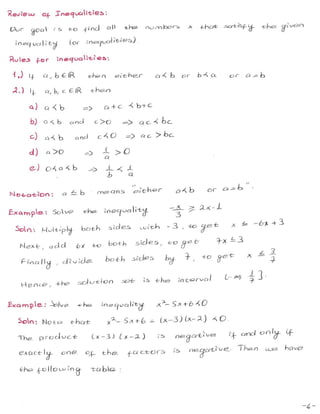 Review of Inequalities:
Our goal is to find all the numbers x that satisfy the given
inequality (or inequalities).
Rules for Inequalities:
1.) If a, b ∈ ℝ then either a < b or b < a or a = b
2.) If a, b, c ∈ ℝ then
a) a < b => a + c < b + c
b) a < b and c > 0 => ac < bc
c) a < b and c < 0 => ac > bc
d) a > 0 => 1/a > 0
e) 0 < a < b => 1/b < 1/a
Notation: a ≤ b means "either a < b or a = b".
Example: Solve the inequality -x/3 ≥ 2x-1
Soln: Multiply both sides with -3, to get x ≤ -6x + 3
Next, add 6x to both sides, to get 7x ≤ 3
Finally, divide both sides by 7, to get x ≤ 3/7
Hence, the solution set is the interval (-∞, 3/7].
Example: Solve the inequality x² - 5x + 6 < 0
Soln: Note that x² - 5x + 6 = (x-3)(x-2) < 0
The product (x-3)(x-2) is negative if and only if
exactly one of the factors is negative. Then we have
the following table:
-6-